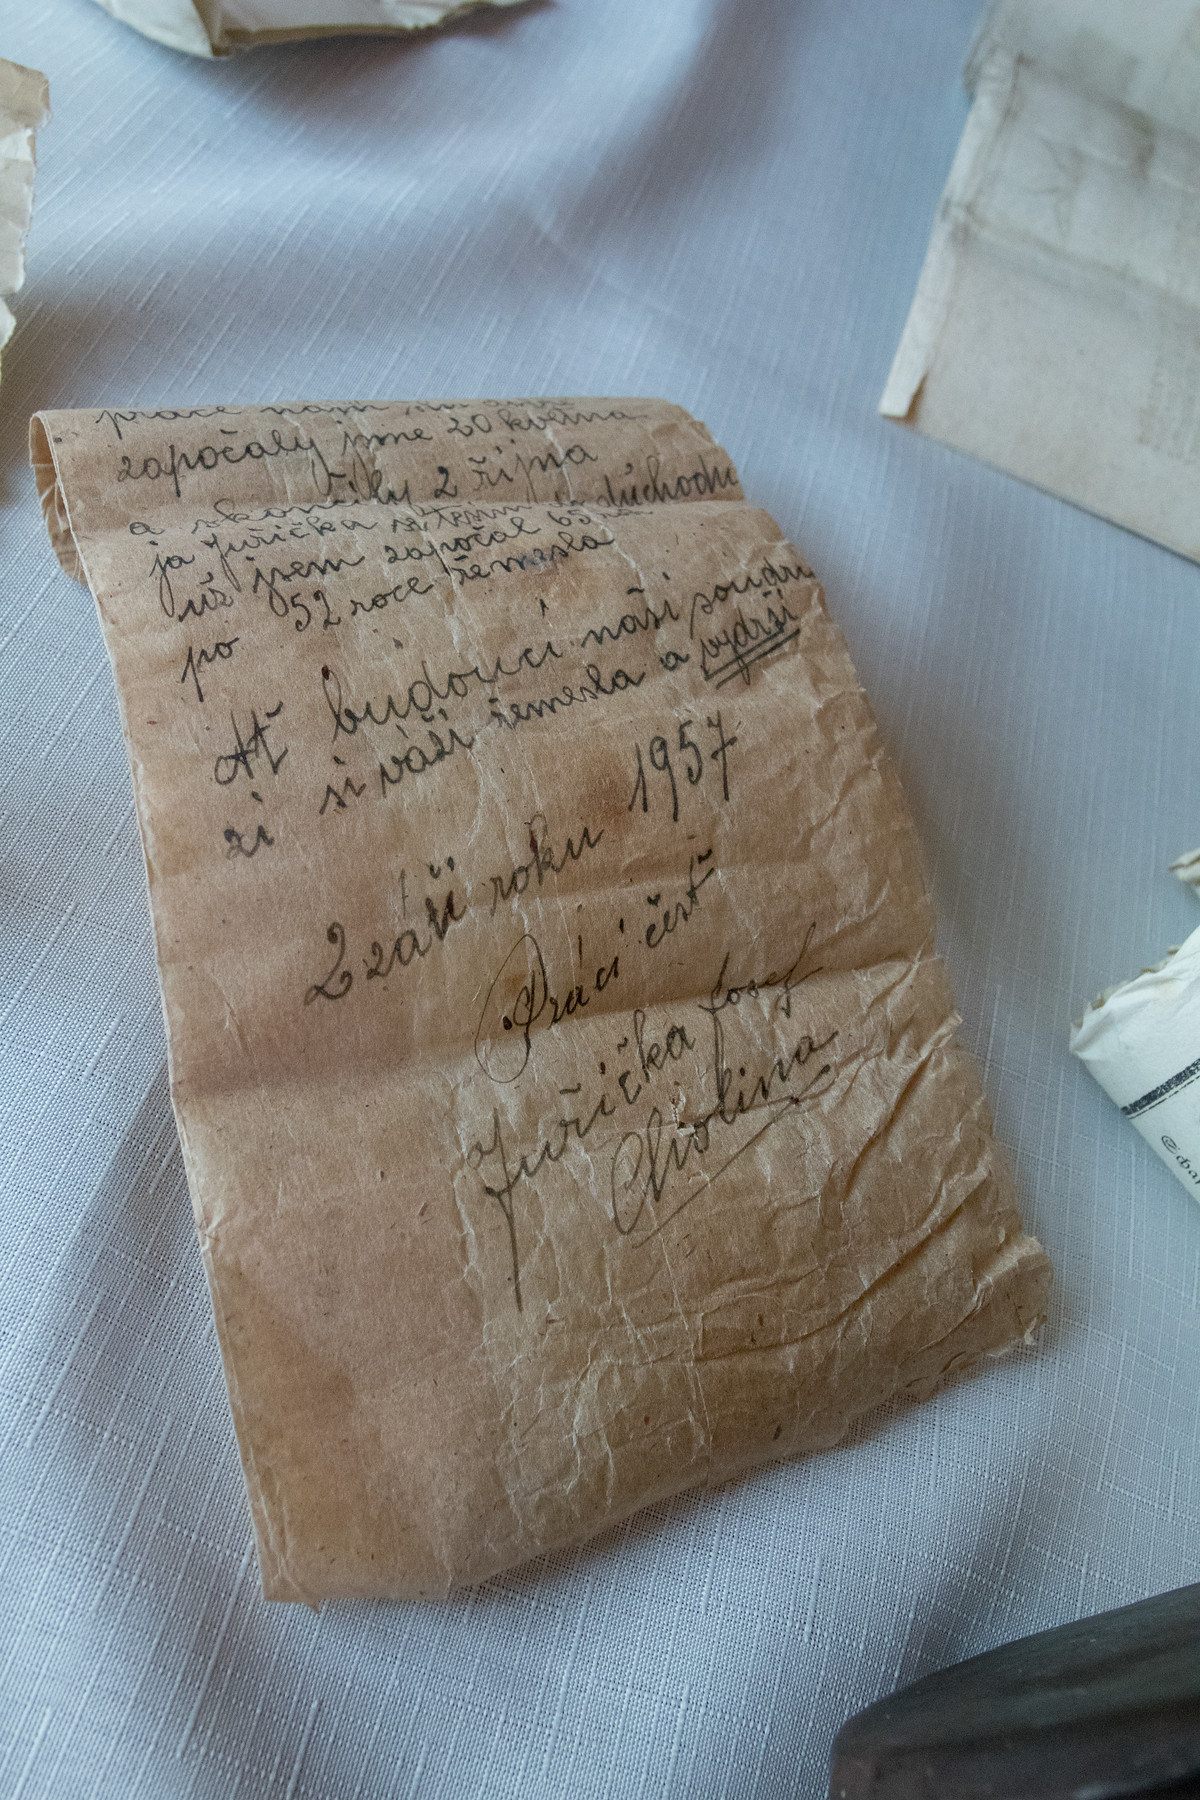 práce nám
započaly jsme 20 května
a skončily 2 řijna
ja Juřička se tesim do důchodu
už jsem započal 65
po 52 roce řemesla
Ať budoucí naši soudru
zi si váži řemesla a vydrži
2 záři roku 1957
Práci čest
Juřička Josef
Cholina